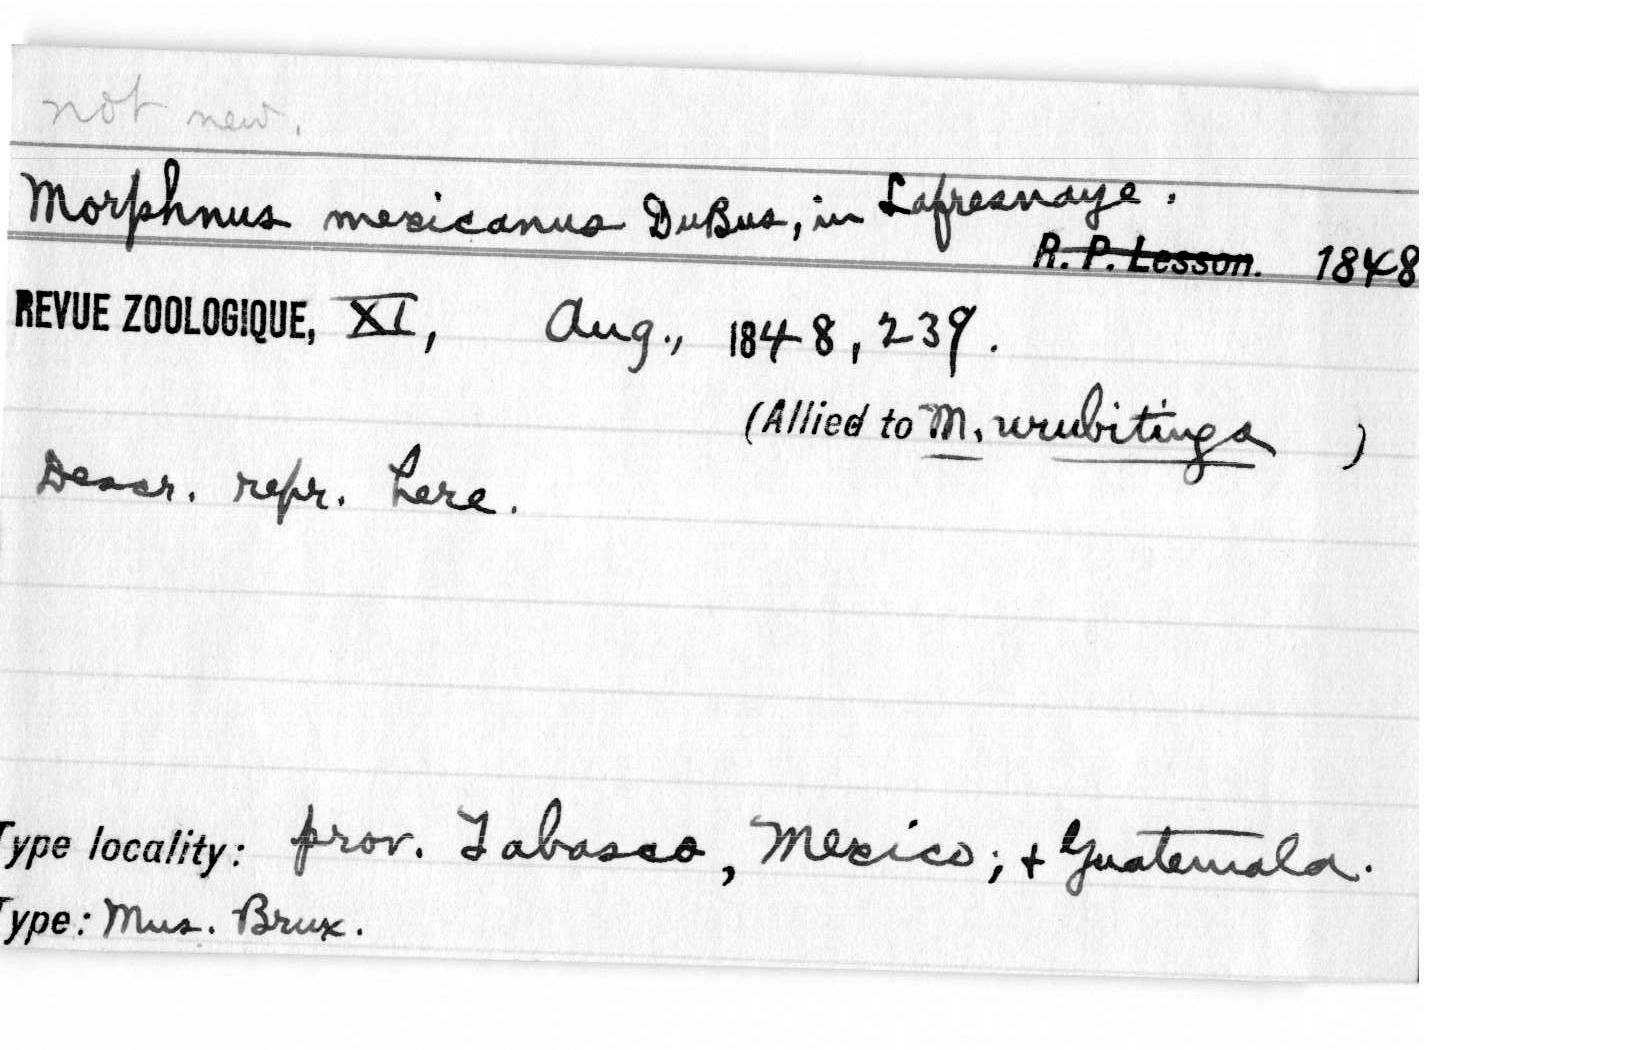 not new.
Morphnus mexicanus DuBus, in Lafresnaye.
R. P. Lesson. 1848
REVUE ZOOLOGIQUE, XI, Aug., 1848, 239.
(Allied to M. urubitinga )
Descr. repr. here.
Type locality: prov. Tabasco, Mexico; + Guatemala.
Type: Mus. Brux.